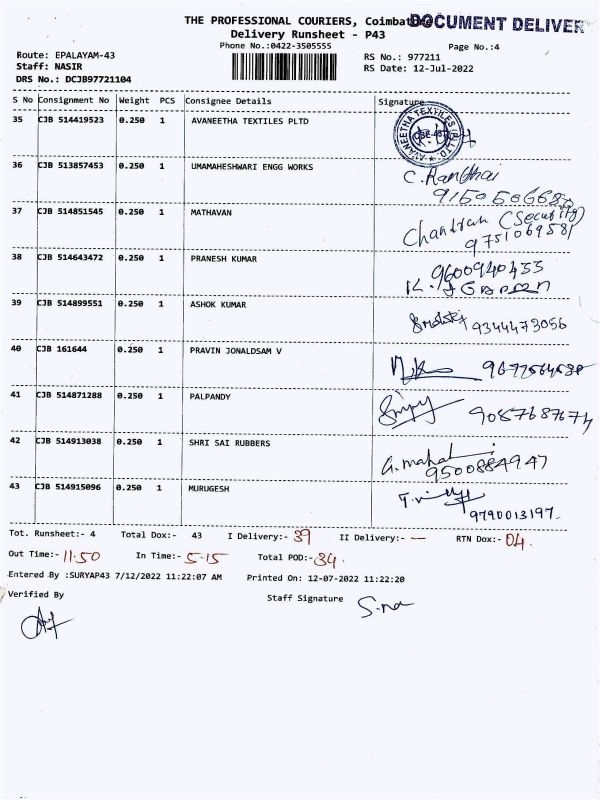 THE PROFESSIONAL COURIERS, Coimbatore
DOCUMENT DELIVER
Delivery Runsheet - P43
Phone No.:0422-3505555
Page No.:4
Route: EPALAYAM-43
RS No.: 977211
Staff: NASIR
RS Date: 12-Jul-2022
DRS No.: DCJB97721104
S No Consignment No Weight PCS Consignee Details Signature
35 CJB 514419523 0.250 1 AVANEETHA TEXTILES PLTD
AVANEETHA TEXTILES (P) LTD.
36 CJB 513857453 0.250 1 UMAMAHESHWARI ENGG WORKS
37 CJB 514851545 0.250 1 MATHAVAN Chandran (Security)
9751069581
38 CJB 514643472 0.250 1 PRANESH KUMAR 9600940433
39 CJB 514899551 0.250 1 ASHOK KUMAR 9344473056
40 CJB 161644 0.250 1 PRAVIN JONALDSAM V
41 CJB 514871288 0.250 1 PALPANDY
42 CJB 514913038 0.250 1 SHRI SAI RUBBERS
9500884947
43 CJB 514915096 0.250 1 MURUGESH
9790013197
Tot. Runsheet:- 4 Total Dox:- 43 I Delivery:- 39 II Delivery:- — RTN Dox:- 04.
Out Time:- 11.50 In Time:- 5.15 Total POD:- 34.
Entered By :SURYAP43 7/12/2022 11:22:07 AM Printed On: 12-07-2022 11:22:20
Verified By Staff Signature